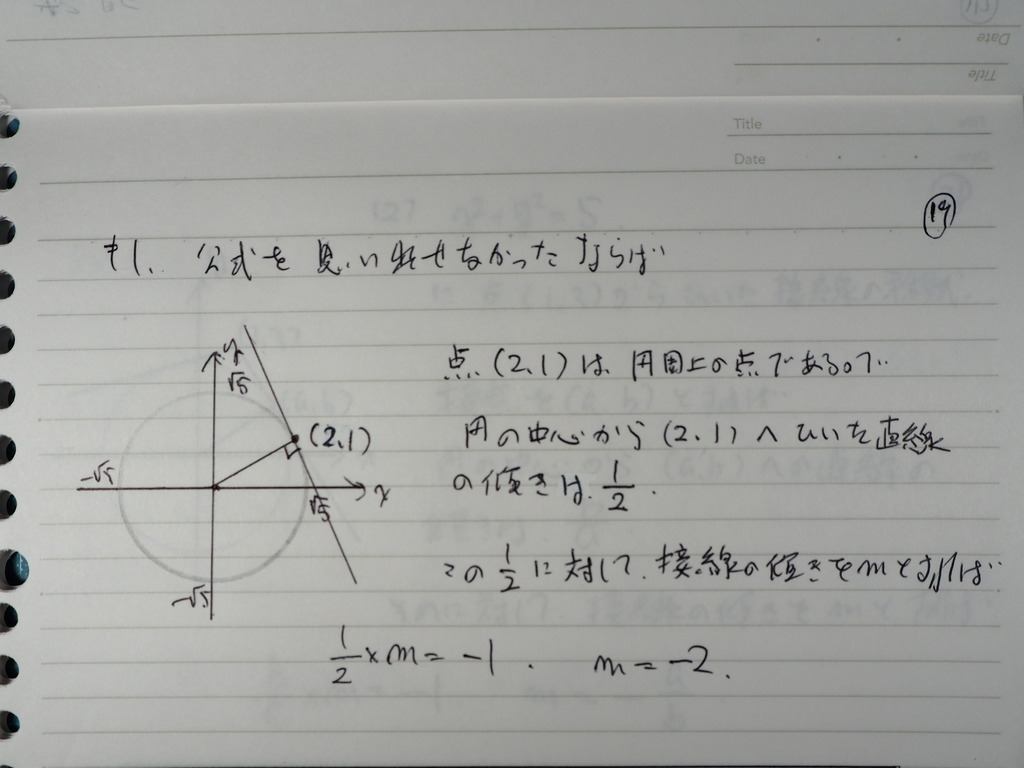 Date
Title
Title
Date
19
もし、公式を思い出せなかったならば
点(2,1)は円周上の点であるので
円の中心から(2,1)へひいた直線
の傾きは、1/2.
この1/2に対して、接線の傾きをmとすれば
1/2×m=-1. m=-2.
y
√5
(2,1)
-√5
x
√5
-√5